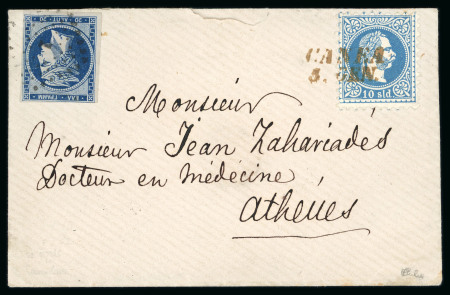 CANEA
5. GEN.
10 sld
20 ΛΕΠΤ. 20
ΕΛΛ ΓΡΑΜΜ
Monsieur
Monsieur Jean Zahariadés
Docteur en médecine
Athènes